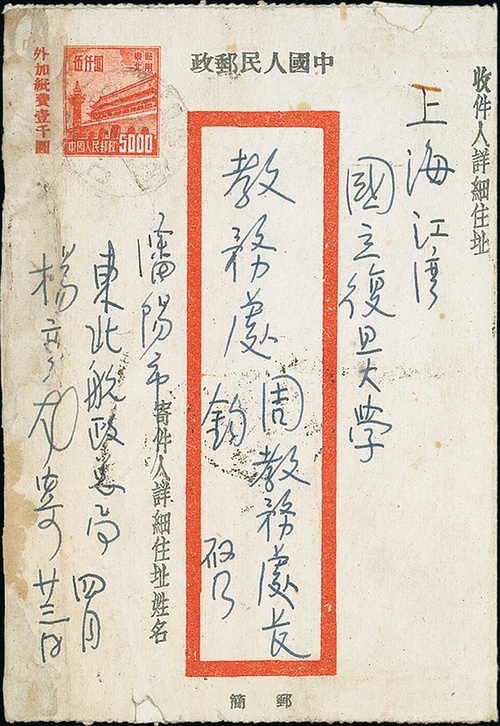 中國人民郵政
收件人詳細住址
上海江湾
國立復旦大学
教務處
周教務處长
鈞啟
瀋陽市
寄件人詳細住址姓名
東北航政总局
四月
廿三日
楊
寄
伍仟圓
東北貼用
中國人民郵政
5000
外加紙費壹千圓
郵簡